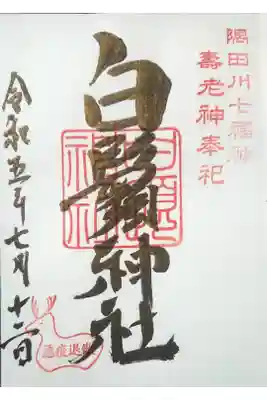 隅田川七福神
壽老神奉祀
白鬚神社
令和五年七月十二日